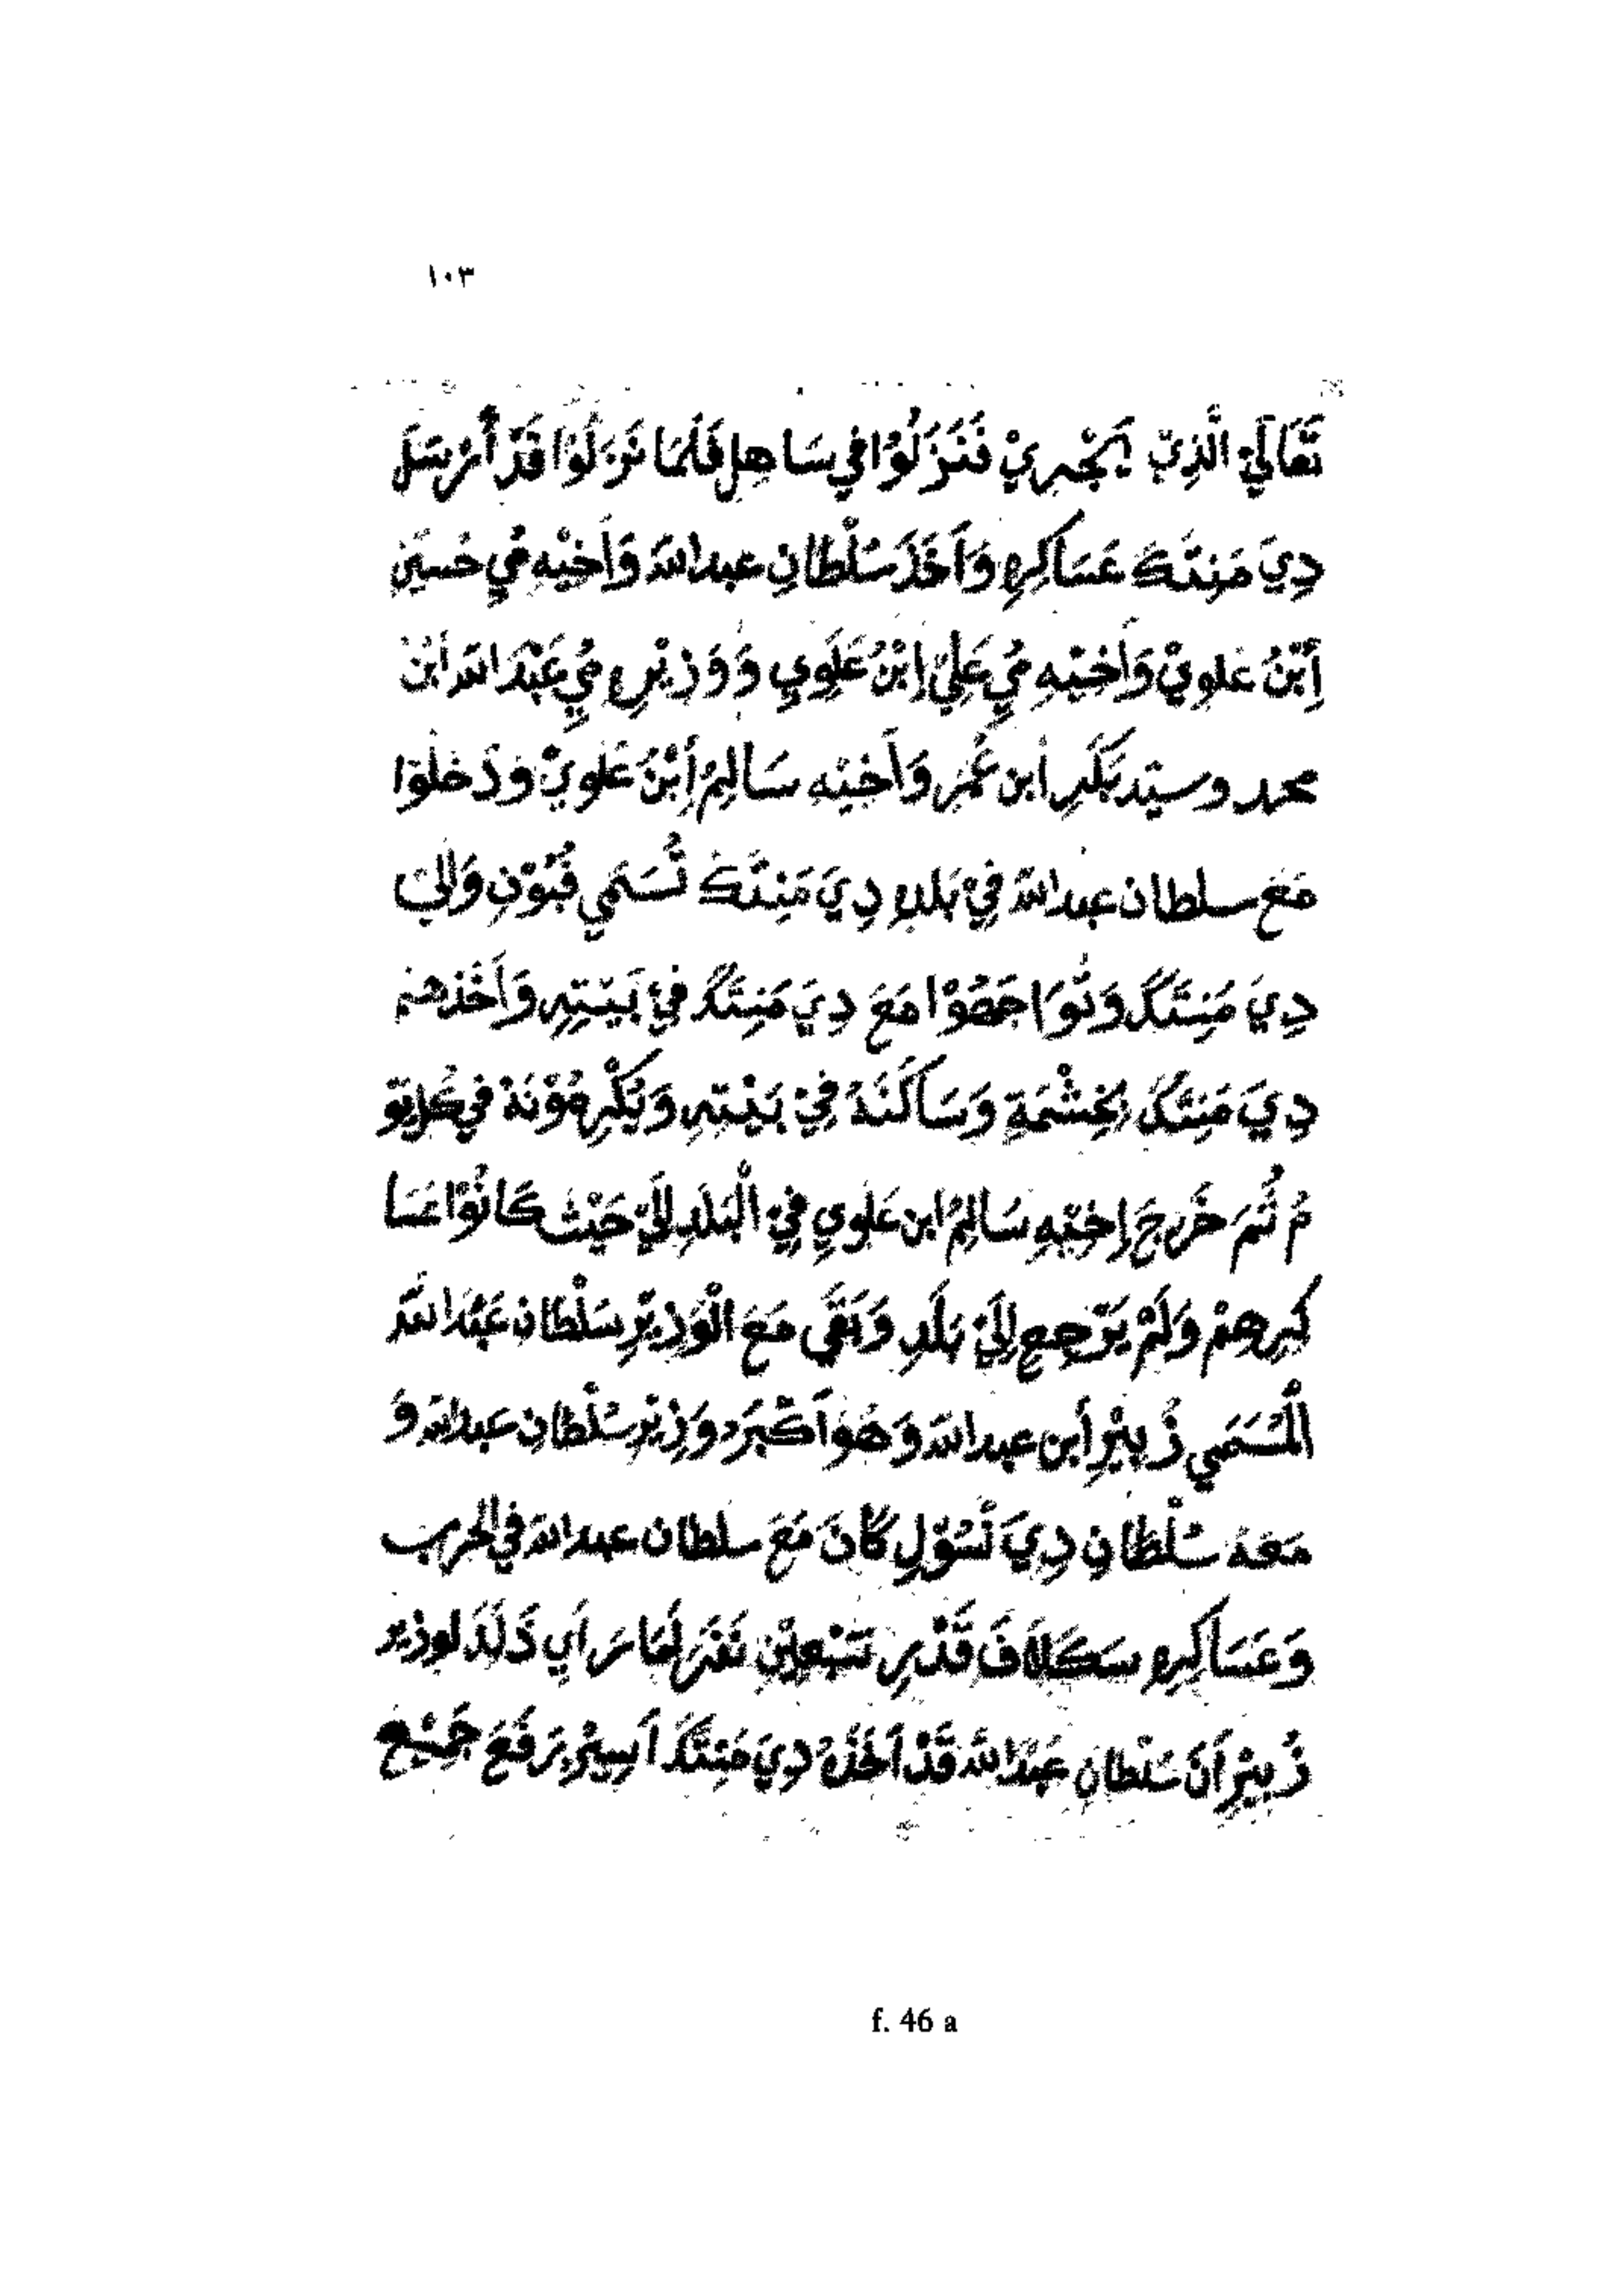 ١٠٣
تَعَالَيْ الَّذِيْ يَجْرِيْ فَنَزَلُوْا فِي سَاهِلِ فَلَمَا نَزَلُوْا قَدْ أَرْسَلَ
دِيَ مَنِتَكَ عَسَاكِرِهِ وَآَخَذَ سُلْطَانِ عبد اللهَ وَآَخِيْهِ مٌيِ حُسَيْنِ
إِبْنُ عَلَوِيْ وَآَخِيْهِ مٌيِ عَلِيْ إِبْنُ عَلَوِيِ وَوَزِيْرِهِ مٌيِ عَبْدَ اللهَ اَبْنْ
محمد وسيّد بَكَرِ أبن عُمَرْ وَآَخِيْهِ سَالِمُ إِبْنُ عَلَوِيْ وَدَخَلُوْا
مَعَ سلطان عبد اللهَ فِيْ بَلَدِ دِيَ مَنِتَكَ تُسَمَي قُبُوْنِ وَاليْ
دِيَ مَنِتَكَ وَتُوَاجَهُوْا مَعَ دِيَ مَنِتَكَ فِيْ بَيْتِهِ وَآَخَذَهُمْ
دِيَ مَنِتَكَ بِخِشْمَةِ وَسَاكَنَهُ فِيْ بَيْتِهِ وَيُكْرِمُوْنَهْ فِي كُلِ يَوْ
مُ ثُمَ خَرَجَ إِخِيْهِ سَالِمُ ابن عَلَوِي فِيْ الْبَلَدِ اِلَيْ حَيْثُ كَانُوْا عَسَا
كِرِهِمْ وَلَمْ يَرْجِعِ اِلَيْ بَلَدِ وَبَقَي مَعَ الْوَزِيْرِ سَلْطَانِ عَبْدَ اللهَ
الْمُسَمَي زُبِيْرِ أبن عبد اللهَ وَهُوَ آَكْبَرَ وَزِيْرِ سُلْطَانِ عبد اللهَ وَ
مَعَهُ سُلْطَانِ دِيَ تُسُوْلِ كَانَ مَعَ سلطان عبد اللهَ في الحرب
وَعَسَاكِرِهِ سَكَلَافَ قَدْرِ سَبْعِيْنِ نَفَرَ لَمَا رَاَي ذَلَدَ لوزير
زُبِيْرِ اَنَ سُلْطَانِ عَبْدَ اللهَ قَدْ آَخَذَهُ دِيَ مَنِتَكَ آَسِيْرْ يَرَفَعَ جَمِيْعِ
f. 46 a